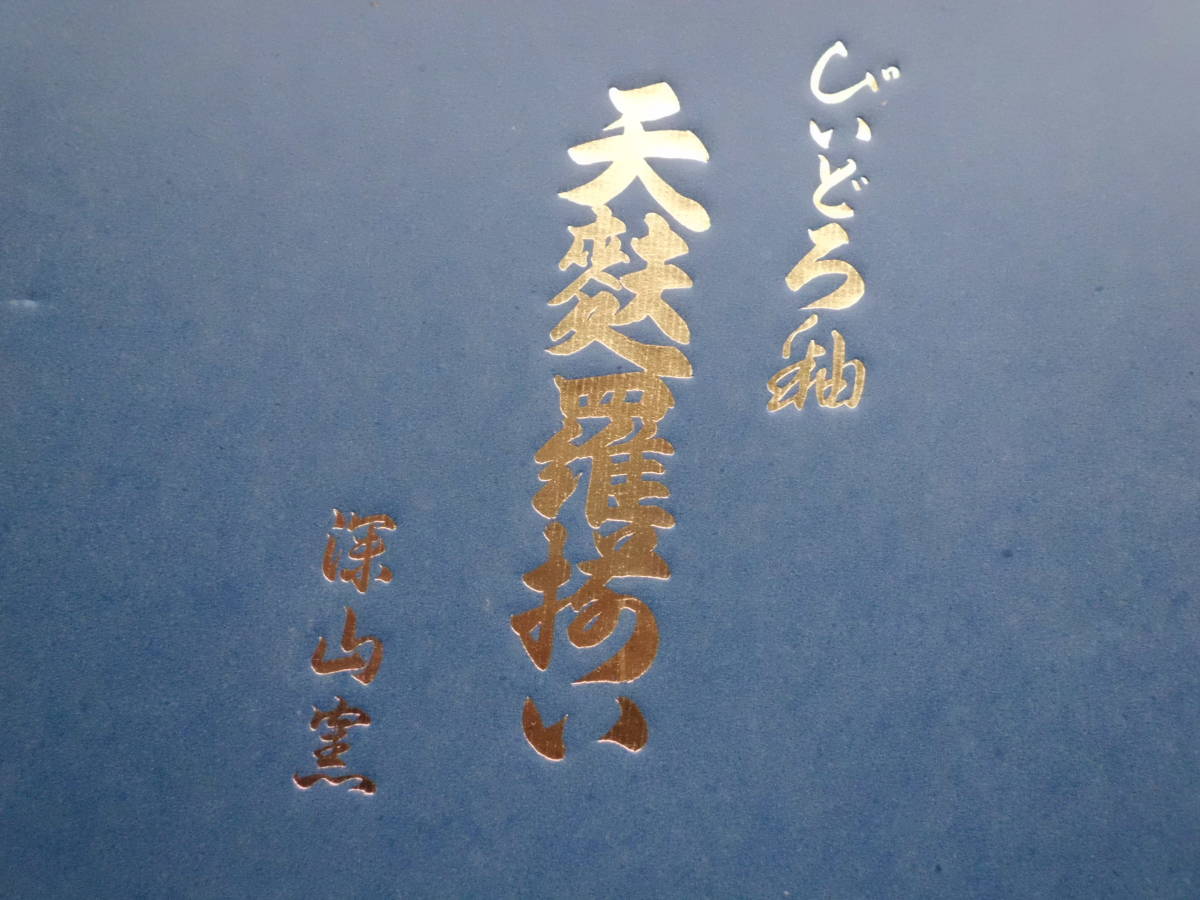 びいどろ釉
天麩羅揃い
深山窯